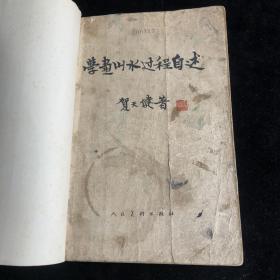 学画山水过程自述
贺天健著
人民美术出版社